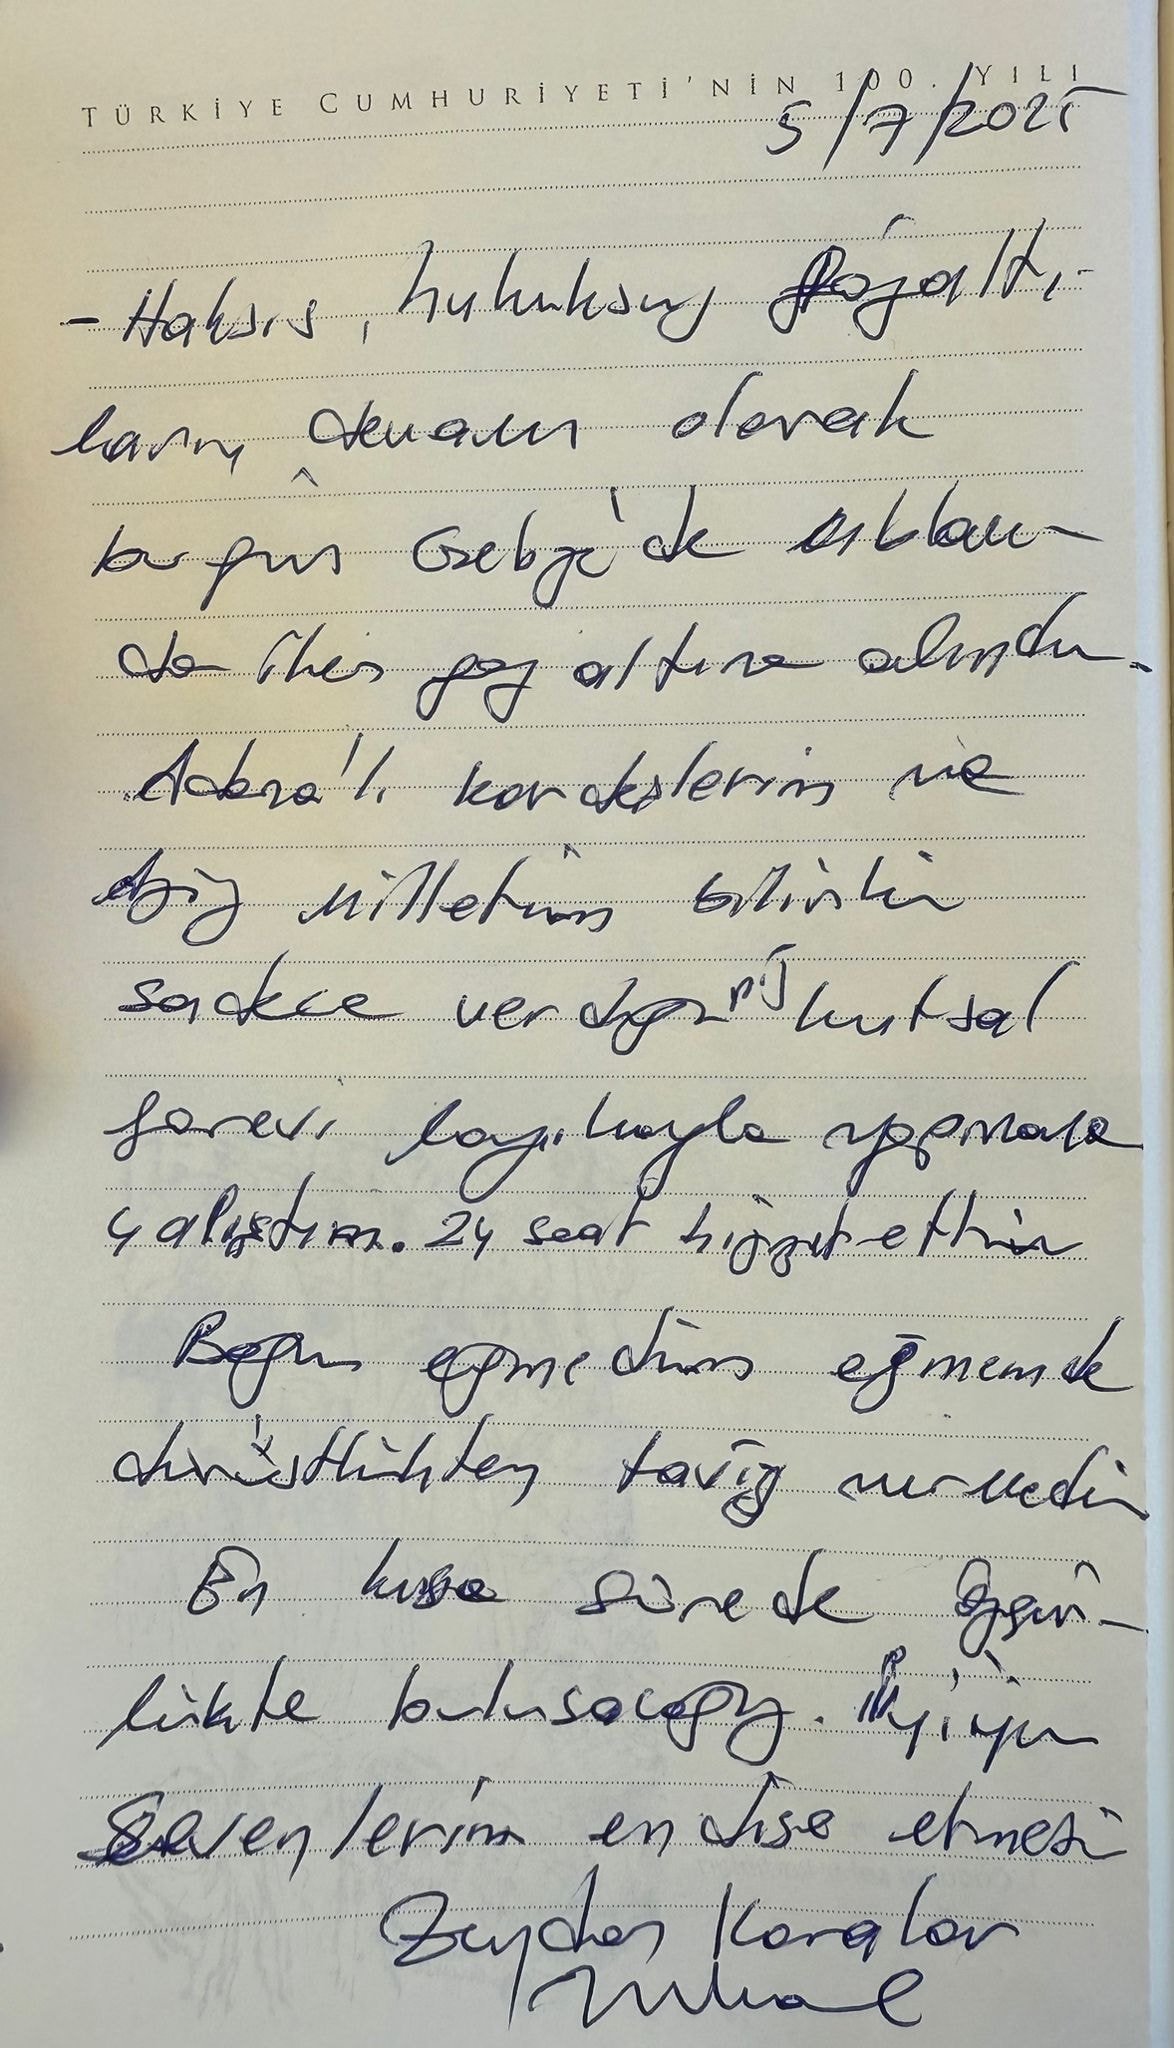 TÜRKİYE CUMHURİYETİ'NİN 100. YILI
5/7/2025
- Haksıs, hukuksuz gözaltı-
ların devamı olarak
bugün Gebze'de ablam-
da ikin göz altına alındım.
Adana'lı kardeşlerim ve
aziz milletim bilsinki
sadece verdiğiniz kutsal
görevi layıkıyla yapmaya
çalıştım. 24 saat hizmet ettim
Boğun eğmedim eğmemde
dürüstlükten taviz vermedim
En kısa sürede özgür-
lükte buluşacağız. İyiyim
Sevenlerim endişe etmesin
Zeydan Karalar